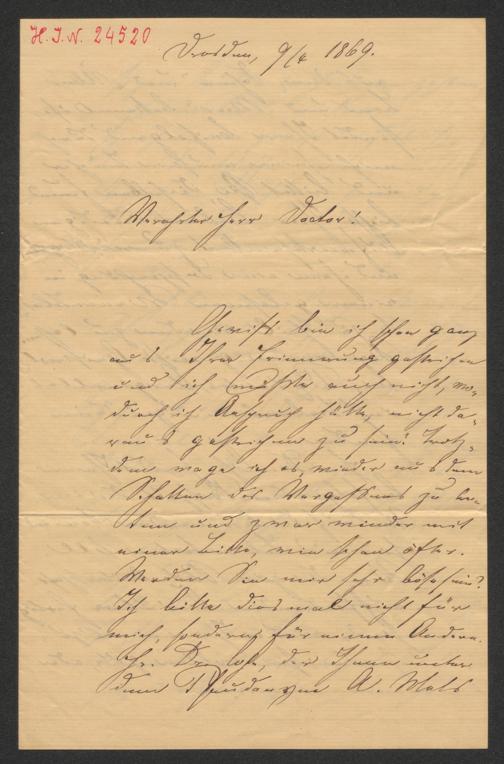 H. I. N. 24520
Dresden, 9/4 1869.
Verehrter Herr Doctor!
Gewiß bin ich schon ganz
aus Ihrer Erinnerung gestrichen
und ich wußte auch nicht, wo-
durch ich Anspruch hätte, nicht da-
raus gestrichen zu sein! Trotz-
dem wage ich es, wieder aus dem
Schatten des Vergessens zu tre-
ten und zwar wieder mit
einer Bitte, wie schon öfter.
Werden Sie mir sehr böse sein?
Ich bitte diesmal nicht für
mich, sondern für einen Andern.
Hr. der Ihnen unter
dem Pseudonym A. Mels